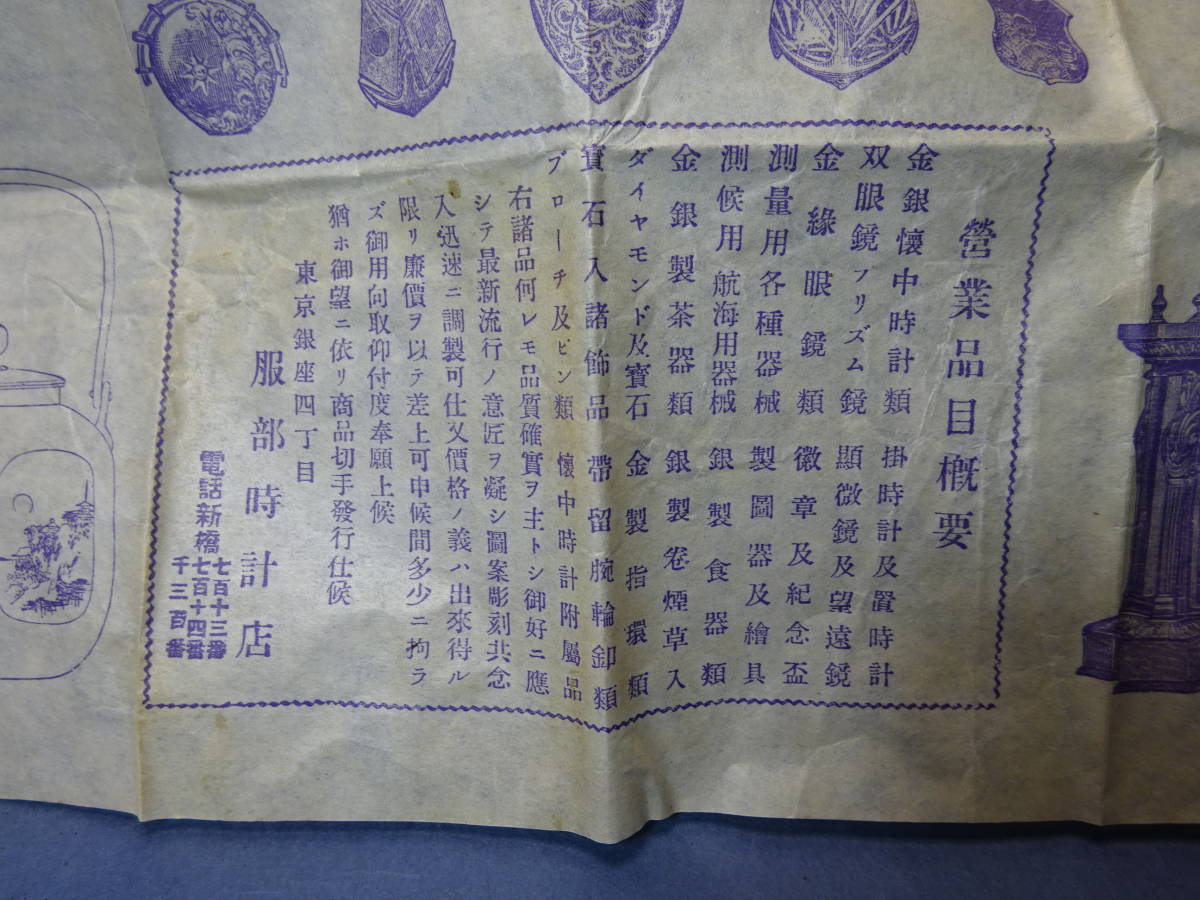 營業品目概要
金銀懷中時計類 掛時計及置時計
双眼鏡フリズム鏡 顯微鏡及望遠鏡
金緣眼鏡類 徽章及紀念盃
測量用各種器械 製圖器及繪具
測候用航海用器械 銀製食器類
金銀製茶器類 銀製卷煙草入
ダイヤモンド及寳石 金製指環類
寳石入諸飾品 帶留腕輪釦類
ブローチ及ピン類 懷中時計附屬品
右諸品何レモ品質確實ヲ主トシ御好ニ應
シテ最新流行ノ意匠ヲ凝シ圖案彫刻共念
入迅速ニ調製可仕又價格ノ義ハ出來得ル
限リ廉價ヲ以テ差上可申候間多少ニ拘ラ
ズ御用向取仰付度奉願上候
猶ホ御望ニ依リ商品切手發行仕候
東京銀座四丁目
服部時計店
電話新橋
七百十三番
七百十四番
千三百番